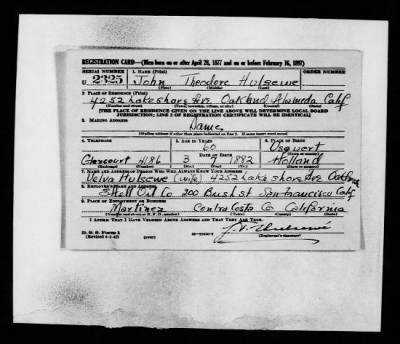 REGISTRATION CARD—(Men born on or after April 28, 1877 and on or before February 16, 1897)
SERIAL NUMBER 1. NAME (Print) ORDER NUMBER
U 2325 John Theodore Hulsewe
(First) (Middle) (Last)
2. PLACE OF RESIDENCE (Print)
4252 Lakeshore Ave. Oakland Alameda Calif
(Number and street) (Town, township, village, or city) (County) (State)
[THE PLACE OF RESIDENCE GIVEN ON THE LINE ABOVE WILL DETERMINE LOCAL BOARD
JURISDICTION; LINE 2 OF REGISTRATION CERTIFICATE WILL BE IDENTICAL]
3. MAILING ADDRESS
Same
[Mailing address if other than place indicated on line 2. If same insert word same]
4. TELEPHONE 5. AGE IN YEARS 6. PLACE OF BIRTH
60
DATE OF BIRTH
Glencourt 4186 3 1882 Holland
7. NAME AND ADDRESS OF PERSON WHO WILL ALWAYS KNOW YOUR ADDRESS
Velva Hulsewe (wife) 4252 Lakeshore Ave Oakland
8. EMPLOYER'S NAME AND ADDRESS
Shell Oil Co. 200 Bush st San Francisco Calif
9. PLACE OF EMPLOYMENT OR BUSINESS
Martinez Contra Costa Co California
(Number and street or R. F. D. number) (Town) (County) (State)
I AFFIRM THAT I HAVE VERIFIED ABOVE ANSWERS AND THAT THEY ARE TRUE.
D. S. S. Form 1
(Revised 4-1-42) (Registrant's signature)